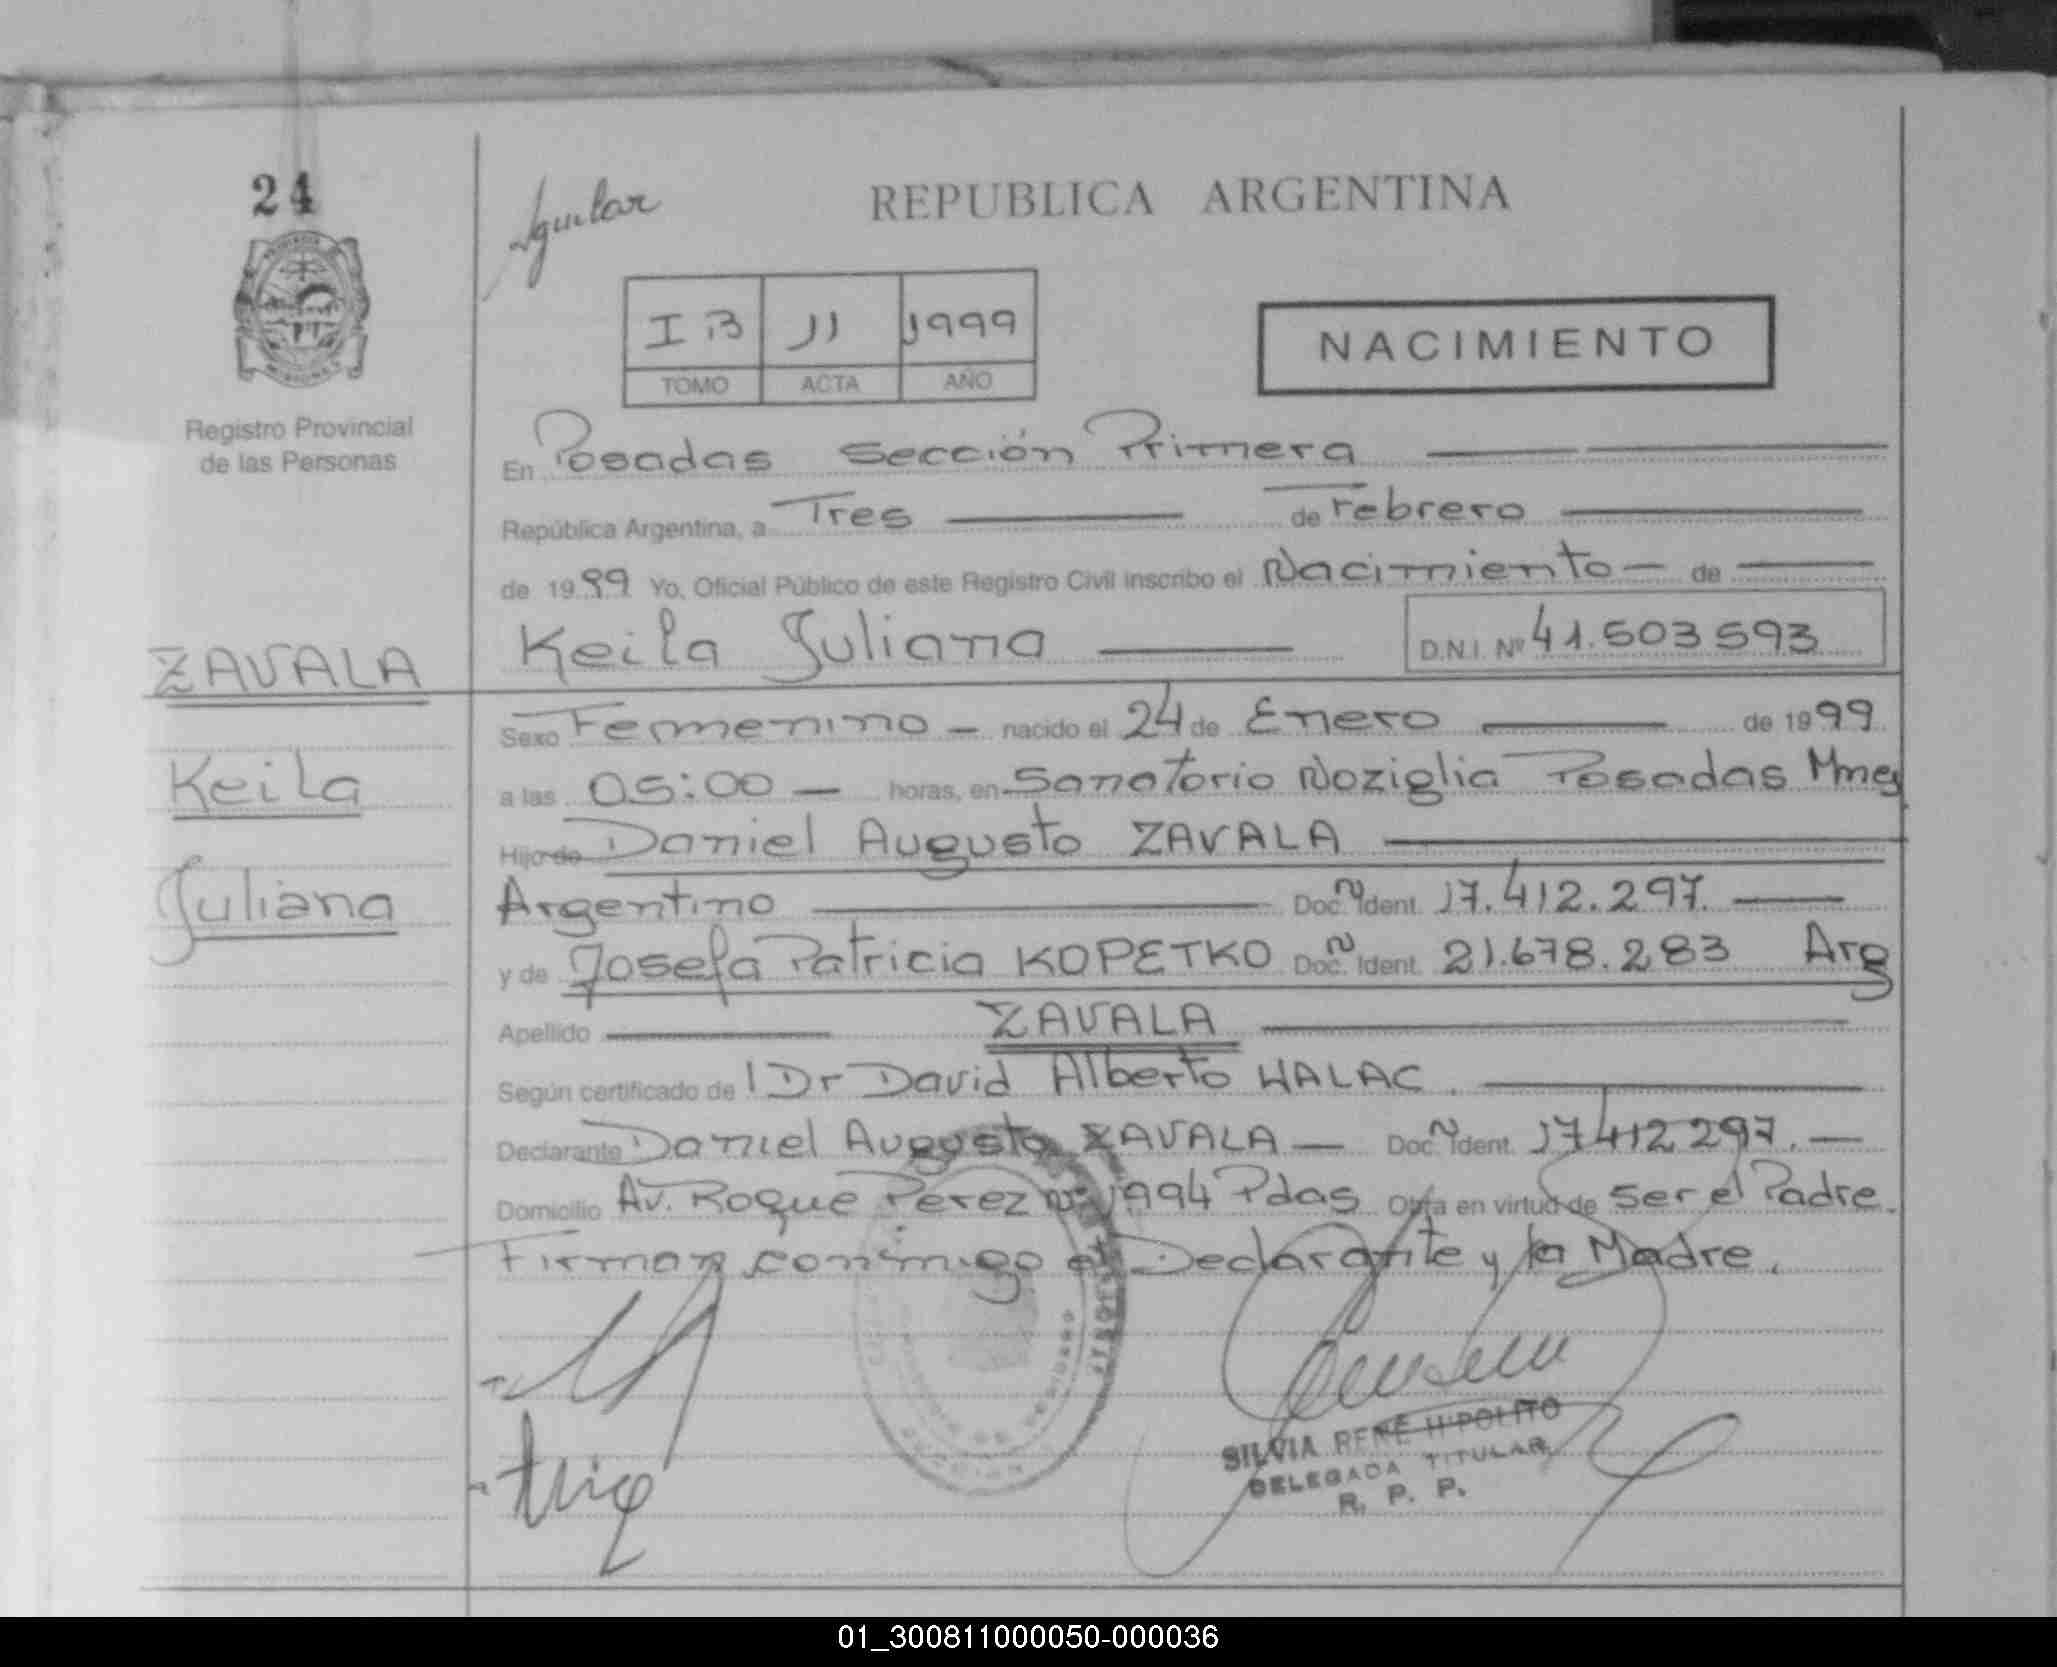 24
Aguilar
REPUBLICA ARGENTINA
I B 11 1999
TOMO ACTA AÑO
NACIMIENTO
Registro Provincial
de las Personas
En Posadas Sección Primera
República Argentina, a Tres de Febrero
de 1999 Yo, Oficial Público de este Registro Civil inscribo el Nacimiento de
Keila Juliana D.N.I. Nº 41.503593
ZAVALA
Keila
Juliana
Sexo Femenino nacido el 24 de Enero de 1999
a las 05:00 horas, en Sanatorio Noziglia Posadas Mnes
Hijo de Daniel Augusto ZAVALA
Argentino Doc. Ident. 17.412.297.
y de Josefa Patricia KOPETKO Doc. Ident. 21.678.283 Arg
Apellido ZAVALA
Según certificado de Dr David Alberto HALAC
Declarante Daniel Augusto ZAVALA Doc. Ident. 17412297.
Domicilio Av. Roque Perez Nº 1994 Pdas Obra en virtud de ser el Padre.
Firman conmigo el Declarante y la Madre.
SILVIA RENÉ HIPOLITO
DELEGADA TITULAR
R. P. P.
01_300811000050-000036